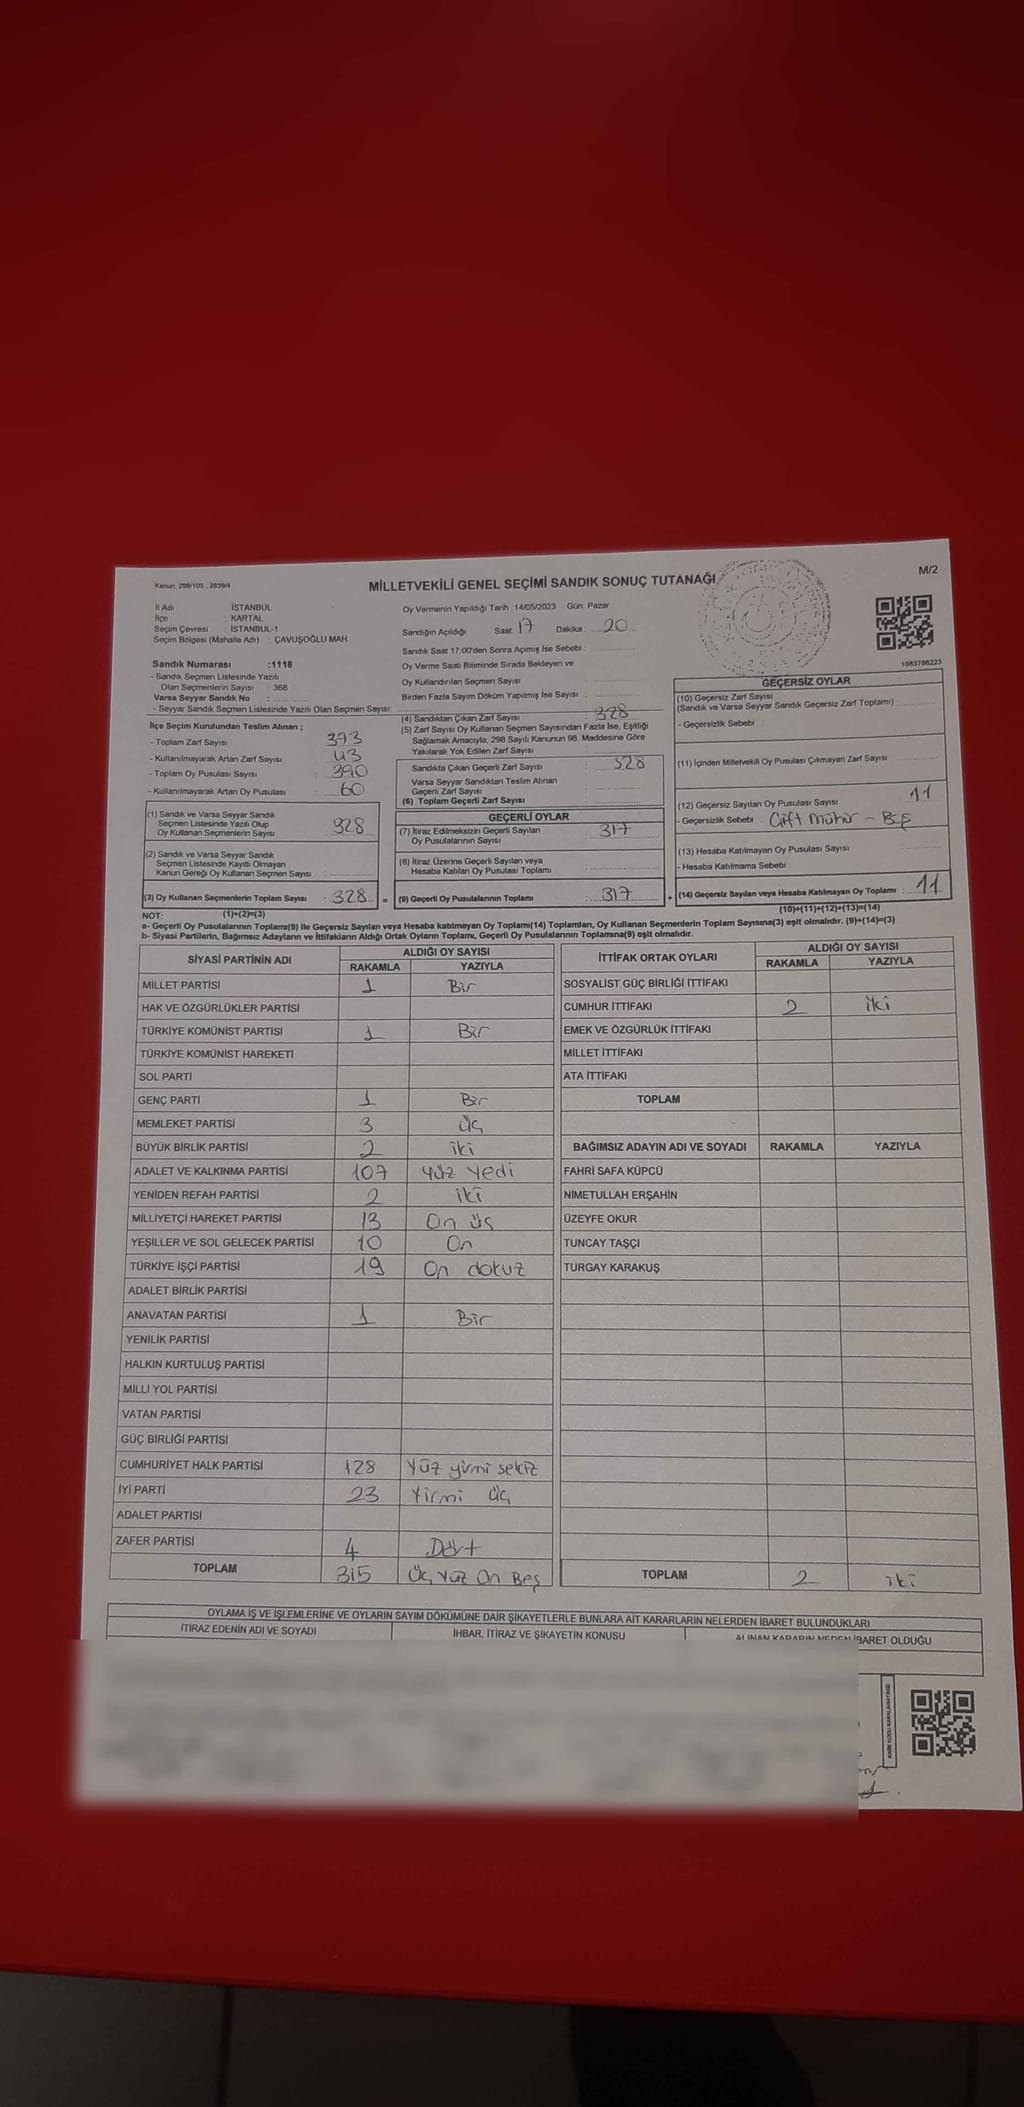 Kanun, 298/105 , 2839/4
MİLLETVEKİLİ GENEL SEÇİMİ SANDIK SONUÇ TUTANAĞI
M/2
İl Adı : İSTANBUL
İlçe : KARTAL
Seçim Çevresi : İSTANBUL-1
Seçim Bölgesi (Mahalle Adı) : ÇAVUŞOĞLU MAH.
Oy Vermenin Yapıldığı Tarih :14/05/2023 Gün: Pazar
Sandığın Açıldığı Saat 17 Dakika : 20
Sandık Saat 17:00'den Sonra Açımış İse Sebebi :
Oy Verme Saati Bitiminde Sırada Bekleyen ve
Oy Kullandırılan Seçmen Sayısı
Birden Fazla Sayım Döküm Yapılmış İse Sayısı :
1083766223
Sandık Numarası :1118
- Sandık Seçmen Listesinde Yazılı
Olan Seçmenlerin Sayısı : 368
Varsa Seyyar Sandık No :
- Seyyar Sandık Seçmen Listesinde Yazılı Olan Seçmen Sayısı:
İlçe Seçim Kurulundan Teslim Alınan ;
- Toplam Zarf Sayısı : 393
- Kullanılmayarak Artan Zarf Sayısı : 43
- Toplam Oy Pusulası Sayısı : 390
- Kullanılmayarak Artan Oy Pusulası : 60
(1) Sandık ve Varsa Seyyar Sandık
Seçmen Listesinde Yazılı Olup
Oy Kullanan Seçmenlerin Sayısı : 328
(2) Sandık ve Varsa Seyyar Sandık
Seçmen Listesinde Kayıtlı Olmayan
Kanun Gereği Oy Kullanan Seçmen Sayısı :
(3) Oy Kullanan Seçmenlerin Toplam Sayısı : 328 =
(1)+(2)=(3)
(4) Sandıktan Çıkan Zarf Sayısı : 328
(5) Zarf Sayısı Oy Kullanan Seçmen Sayısından Fazla İse, Eşitliği
Sağlamak Amacıyla, 298 Sayılı Kanunun 98. Maddesine Göre
Yakılarak Yok Edilen Zarf Sayısı :
Sandıkta Çıkan Geçerli Zarf Sayısı : 328
Varsa Seyyar Sandıktan Teslim Alınan
Geçerli Zarf Sayısı :
(6) Toplam Geçerli Zarf Sayısı :
GEÇERLİ OYLAR
(7) İtiraz Edilmeksizin Geçerli Sayılan
Oy Pusulalarının Sayısı : 317
(8) İtiraz Üzerine Geçerli Sayılan veya
Hesaba Katılan Oy Pusulası Toplamı :
(9) Geçerli Oy Pusulalarının Toplamı : 317 +
GEÇERSİZ OYLAR
(10) Geçersiz Zarf Sayısı
(Sandık ve Varsa Seyyar Sandık Geçersiz Zarf Toplamı) :
- Geçersizlik Sebebi :
(11) İçinden Milletvekili Oy Pusulası Çıkmayan Zarf Sayısı :
(12) Geçersiz Sayılan Oy Pusulası Sayısı : 11
- Geçersizlik Sebebi : Çift mühür - Boş
(13) Hesaba Katılmayan Oy Pusulası Sayısı :
- Hesaba Katılmama Sebebi :
(14) Geçersiz Sayılan veya Hesaba Katılmayan Oy Toplamı : 11
(10)+(11)+(12)+(13)=(14)
NOT:
a- Geçerli Oy Pusulalarının Toplamı(9) ile Geçersiz Sayılan veya Hesaba katılmayan Oy Toplamı(14) Toplamları, Oy Kullanan Seçmenlerin Toplam Sayısına(3) eşit olmalıdır. (9)+(14)=(3)
b- Siyasi Partilerin, Bağımsız Adayların ve İttifakların Aldığı Ortak Oyların Toplamı, Geçerli Oy Pusulalarının Toplamına(9) eşit olmalıdır.
SİYASİ PARTİNİN ADI ALDIĞI OY SAYISI
RAKAMLA YAZIYLA
MİLLET PARTİSİ 1 Bir
HAK VE ÖZGÜRLÜKLER PARTİSİ
TÜRKİYE KOMÜNİST PARTİSİ 1 Bir
TÜRKİYE KOMÜNİST HAREKETİ
SOL PARTİ
GENÇ PARTİ 1 Bir
MEMLEKET PARTİSİ 3 üç
BÜYÜK BİRLİK PARTİSİ 2 iki
ADALET VE KALKINMA PARTİSİ 107 yüz yedi
YENİDEN REFAH PARTİSİ 2 iki
MİLLİYETÇİ HAREKET PARTİSİ 13 On üç
YEŞİLLER VE SOL GELECEK PARTİSİ 10 On
TÜRKİYE İŞÇİ PARTİSİ 19 On dokuz
ADALET BİRLİK PARTİSİ
ANAVATAN PARTİSİ 1 Bir
YENİLİK PARTİSİ
HALKIN KURTULUŞ PARTİSİ
MİLLİ YOL PARTİSİ
VATAN PARTİSİ
GÜÇ BİRLİĞİ PARTİSİ
CUMHURİYET HALK PARTİSİ 128 Yüz yirmi sekiz
İYİ PARTİ 23 Yirmi üç
ADALET PARTİSİ
ZAFER PARTİSİ 4 Dört
TOPLAM 315 Üç Yüz On Beş
İTTİFAK ORTAK OYLARI ALDIĞI OY SAYISI
RAKAMLA YAZIYLA
SOSYALİST GÜÇ BİRLİĞİ İTTİFAKI
CUMHUR İTTİFAKI 2 iki
EMEK VE ÖZGÜRLÜK İTTİFAKI
MİLLET İTTİFAKI
ATA İTTİFAKI
TOPLAM
BAĞIMSIZ ADAYIN ADI VE SOYADI RAKAMLA YAZIYLA
FAHRİ SAFA KÜPCÜ
NİMETULLAH ERŞAHİN
ÜZEYFE OKUR
TUNCAY TAŞÇI
TURGAY KARAKUŞ
TOPLAM 2 iki
OYLAMA İŞ VE İŞLEMLERİNE VE OYLARIN SAYIM DÖKÜMÜNE DAİR ŞİKAYETLERLE BUNLARA AİT KARARLARIN NELERDEN İBARET BULUNDUKLARI
İTİRAZ EDENİN ADI VE SOYADI İHBAR, İTİRAZ VE ŞİKAYETİN KONUSU ALINAN KARARIN NEDEN İBARET OLDUĞU